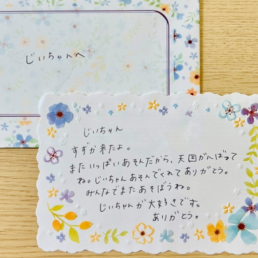 じいちゃんへ
じいちゃん
すずが来たよ。
またいっぱいあそんだから、天国がんばって
ね。じいちゃんあそんでくれてありがとう。
みんなでまたあそぼうね。
じいちゃんが大好きです。
ありがとう。